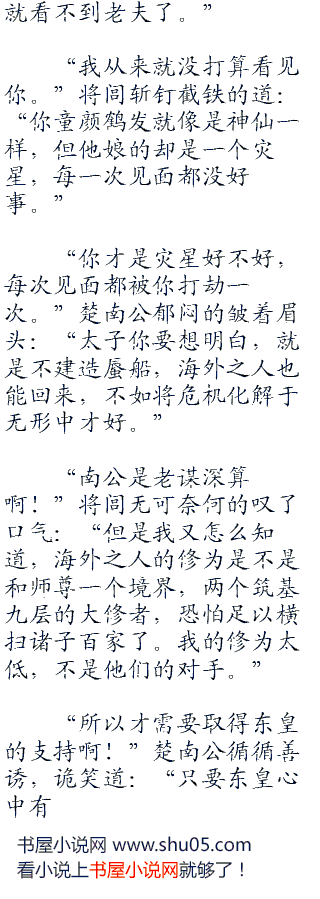 就看不到老夫了。”
“我从来就没打算看见
你。”将闾斩钉截铁的道：
“你童颜鹤发就像是神仙一
样，但他娘的却是一个灾
星，每一次见面都没好
事。”
“你才是灾星好不好，
每次见面都被你打劫一
次。”楚南公郁闷的皱着眉
头：“太子你要想明白，就
是不建造蜃船，海外之人也
能回来，不如将危机化解于
无形中才好。”
“南公是老谋深算
啊！”将闾无可奈何的叹了
口气：“但是我又怎么知
道，海外之人的修为是不是
和师尊一个境界，两个筑基
九层的大修者，恐怕足以横
扫诸子百家了。我的修为太
低，不是他们的对手。”
“所以才需要取得东皇
的支持啊！”楚南公循循善
诱，诡笑道：“只要东皇心
中有
书屋小说网 www.shu05.com
看小说上书屋小说网就够了！